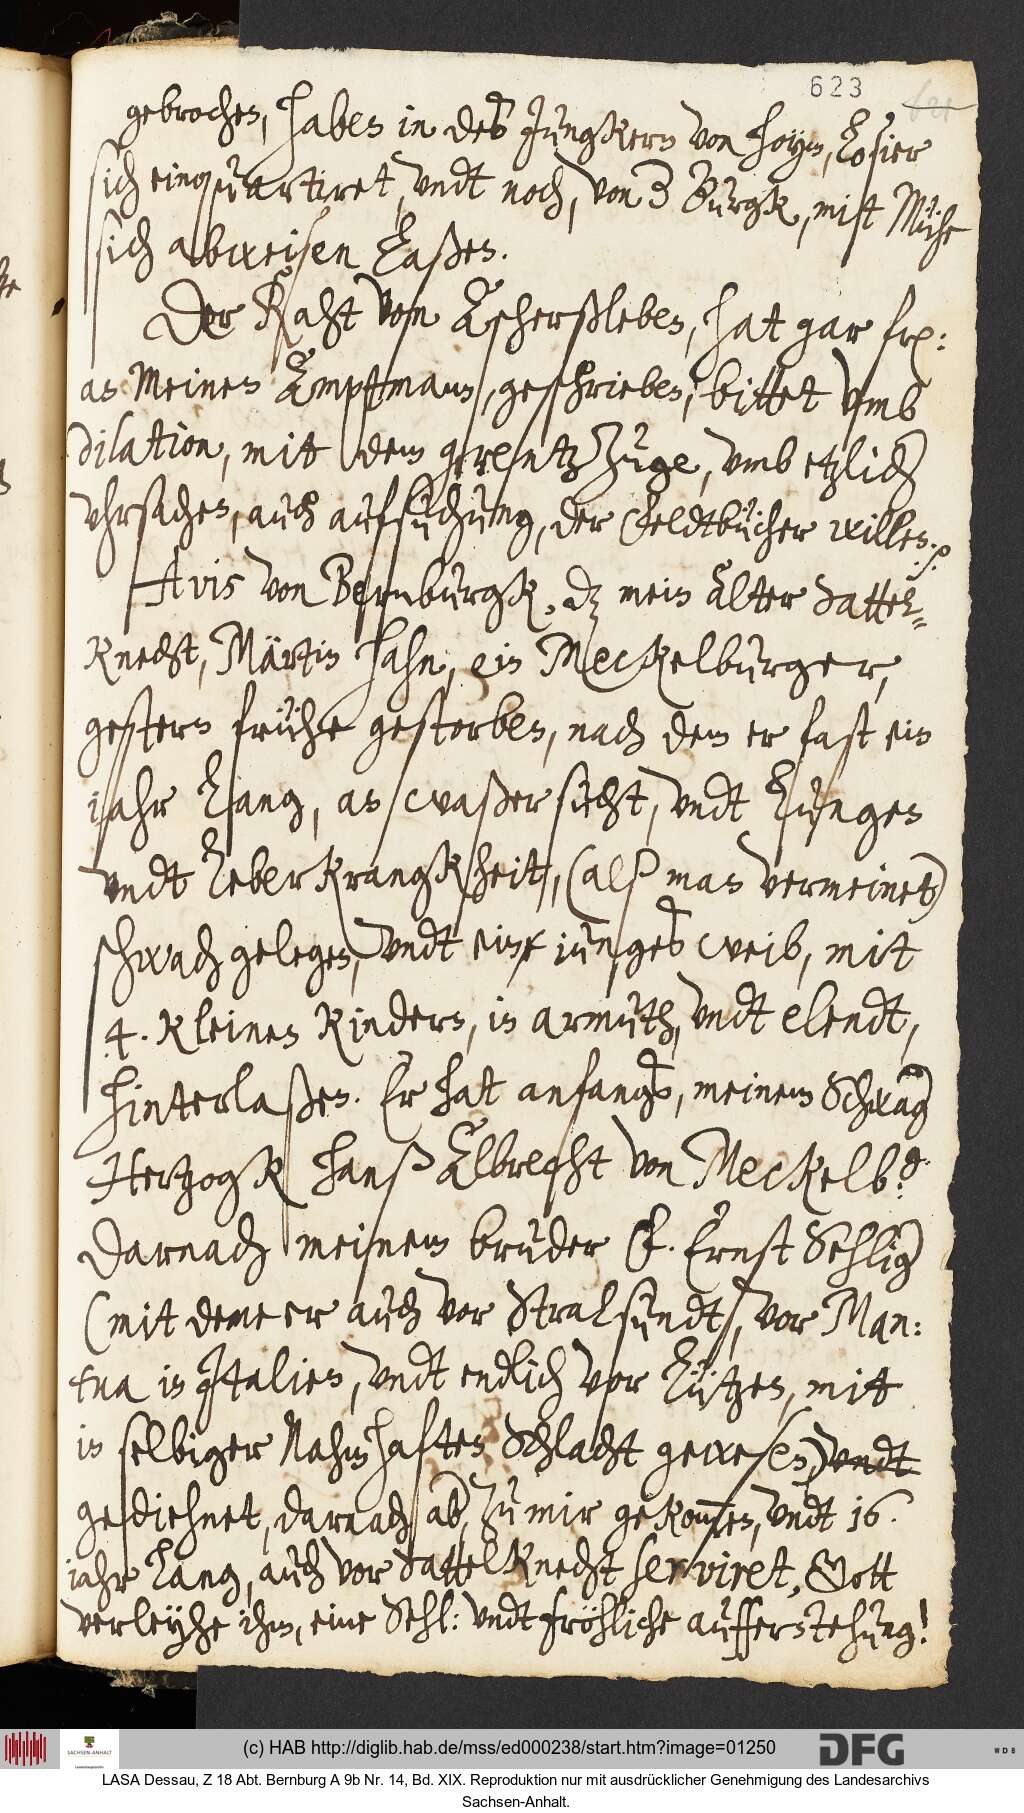 623
gebrochen, haben in des Jungkern von Hoym, Losier
sich einquartiret, undt noch, von Burgk, mitt Mühe
sich abweisen laßen.
Der Raht von Ascherßleben, hat gar fr:
an Meinen Amptmann, geschrieben, bittet umb
dilation, mit dem grentzZuge, umb etzlich
uhrsachen, auch aufsuchung, der Feldtbücher willen. ./.
Avis von Bernburgk, dz mein alter Sattel-
Knecht, Märtin Hahn, ein Meckelburger,
gestern frühe gestorben, nach dem er fast ein
iahr lang, an waßersucht, undt Lungen
undt Leber Krangkheit, (alß man vermeinet)
schwach gelegen, undt ein iunges weib, mit
4. Kleinen Kindern, in armuth, undt elendt,
hinterlaßen. Er hat anfangs, meinem Schwag
Hertzogk Hanß Albrecht von Meckelb:
Darnach meinem bruder F. Ernst Sehlig
(mit deme er auch vor Stralsundt, vor Man:
tua in Jtalien, undt endlich vor Lützen, mitt
in selbiger Nahmhaften Schlacht gewesen) undt
gediehnet, darnach ab, Zu mir gekommen, undt 16.
iahr lang, auch vor Sattelknecht serviret, Gott
verleyhe ihm, eine Sehl: undt fröhliche aufferstehung!
(c) HAB http://diglib.hab.de/mss/ed000238/start.htm?image=01250
SACHSEN-ANHALT
DFG
WDB
LASA Dessau, Z 18 Abt. Bernburg A 9b Nr. 14, Bd. XIX. Reproduktion nur mit ausdrücklicher Genehmigung des Landesarchivs
Sachsen-Anhalt.